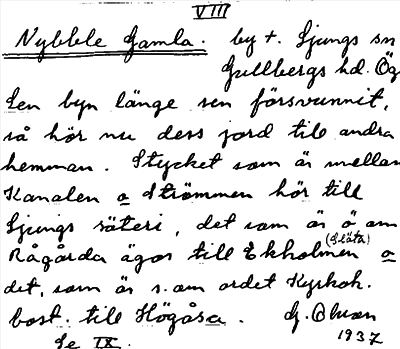 VIII
Nybble Gamla. by +. Ljungs sn
Gullbergs hd. Ög
Sen byn länge sen försvunnit,
så hör nu dess jord till andra
hemman. Stycket som är mellan
Kanalen o Strömmen hör till
Ljungs säteri, det som är ö om
(Släta)
Rågårda ägor till Ekholmen o
det, som är s. om ordet Kyrkoh.
bost. till Högåsa. G. Olson
1937
Se IX.